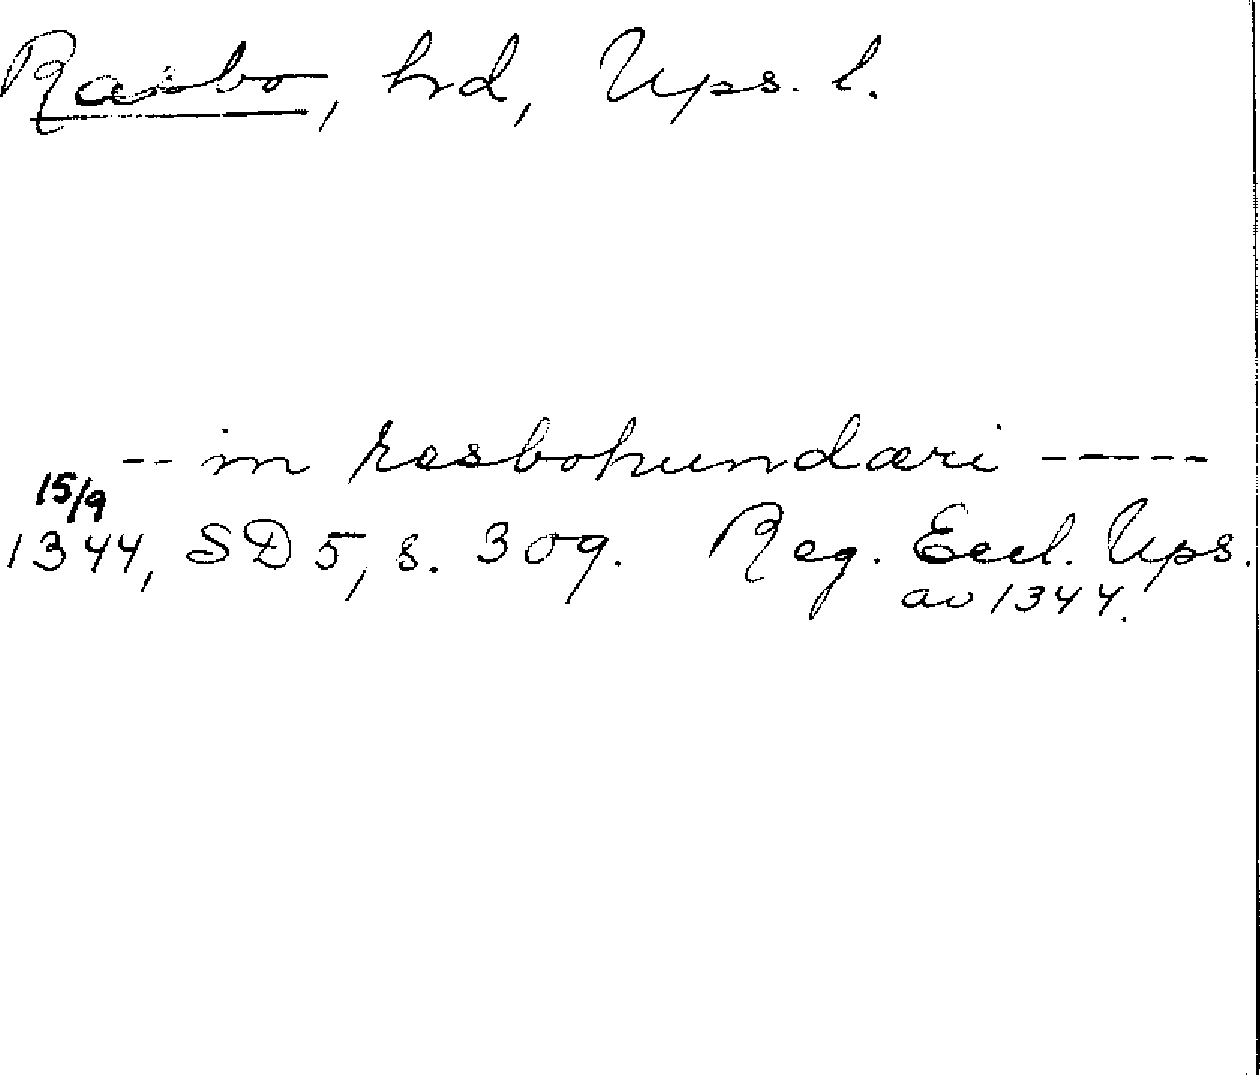 Rasbo, hd, Ups. l.
-- in resbohundæri -----
15/9
1344, SD 5, s. 309. Reg. Eccl. Ups.
av 1344.